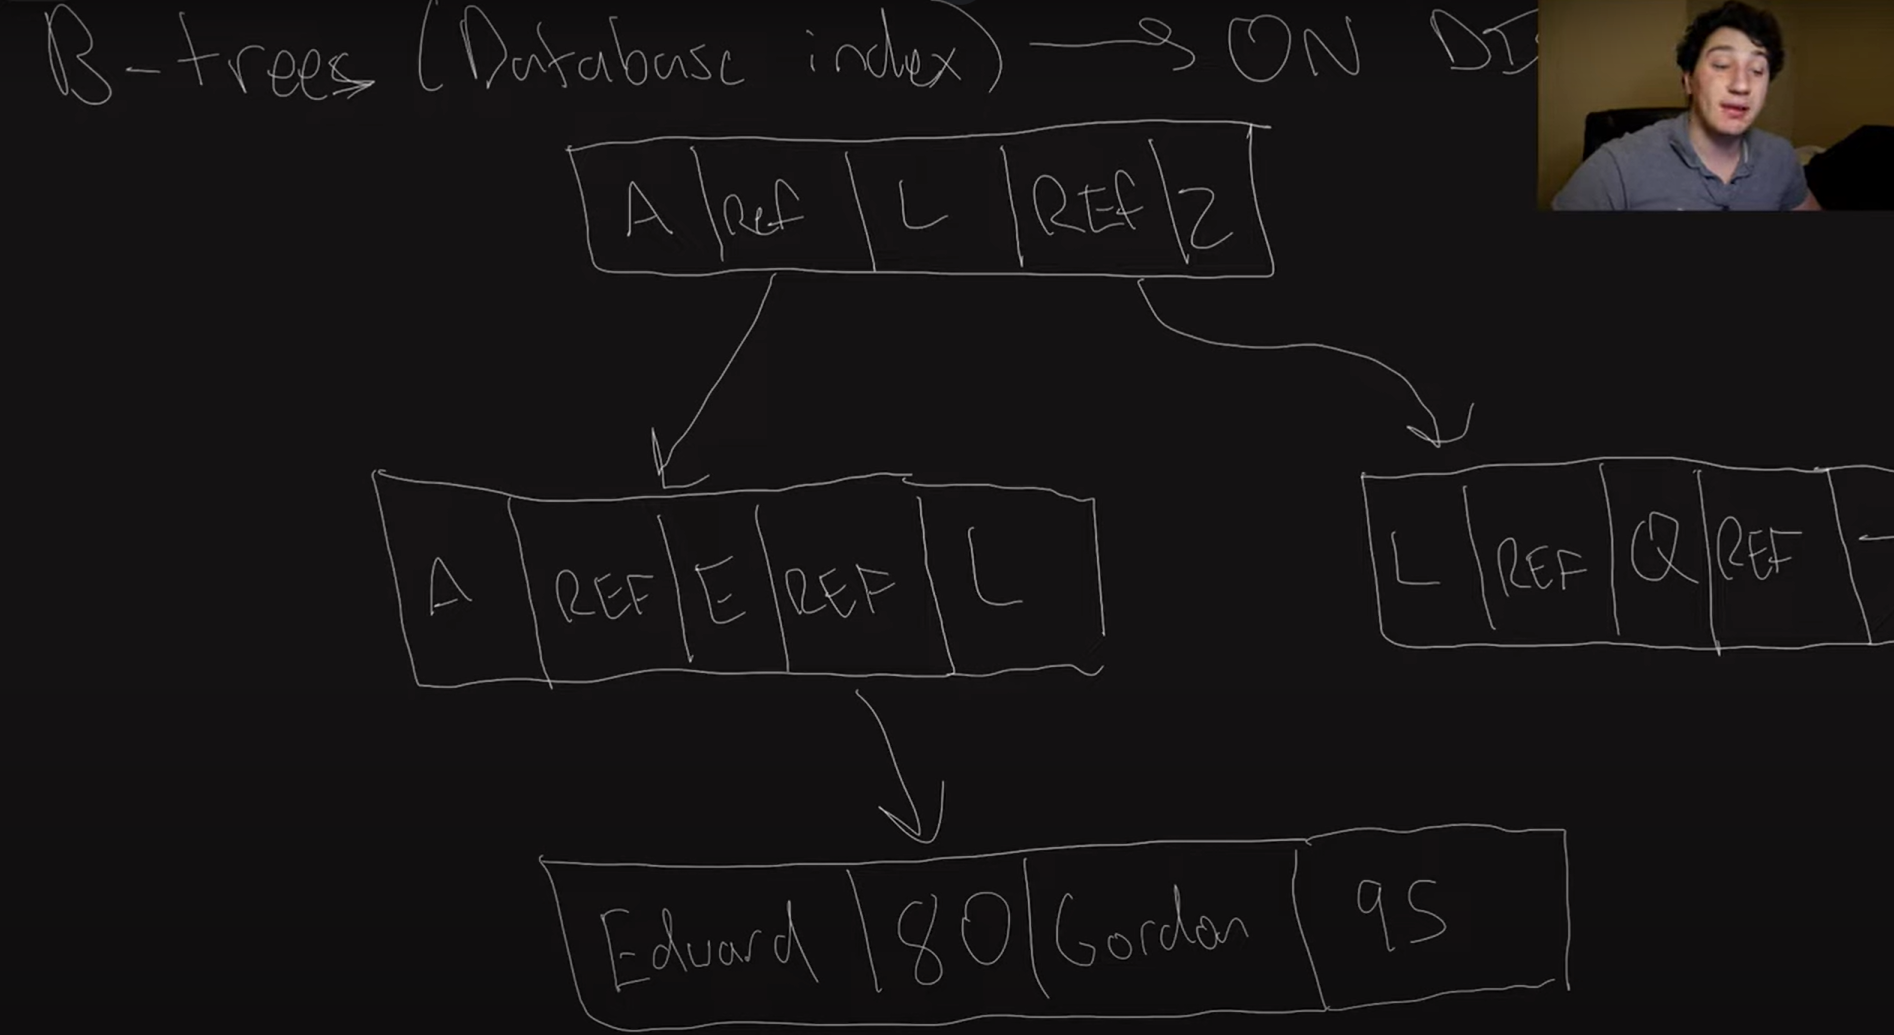 B-trees (Database index) → ON DIS
A Ref L REf Z
A REF E REF L
L REF Q REF
Edward 80 Gordon 95